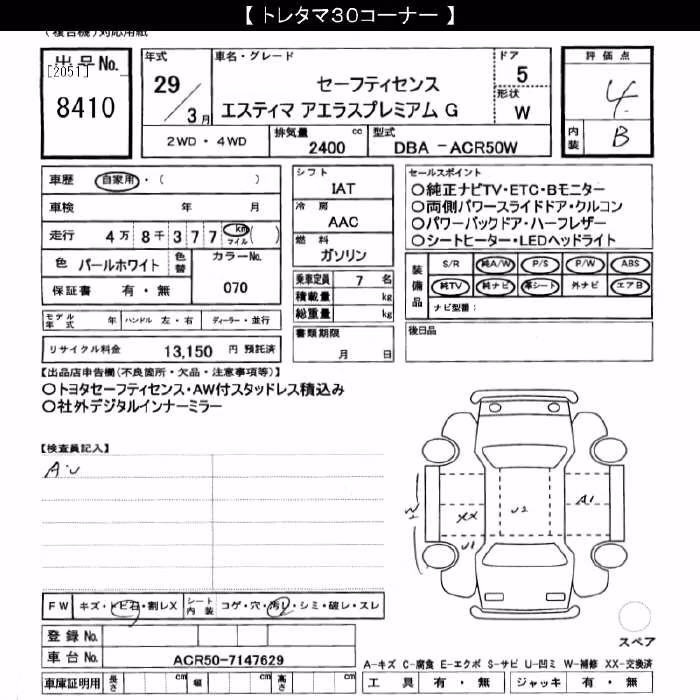 【 トレタマ３０コーナー 】
(複合機)対応用紙
出品No.
[2051]
8410
年式
29
3月
車名・グレード
セーフティセンス
エスティマ アエラスプレミアム G
ドア
5
形状
W
評価点
4
内装
B
2WD・4WD
排気量
cc
2400
型式
DBA － ACR50W
車歴 自家用・( )
車検 年 月
走行 4万8千377 km マイル( )
色 パールホワイト 色替 カラーNo.
保証書 有・無 070
シフト
IAT
冷房
AAC
燃料
ガソリン
乗車定員 7 名
積載量 kg
総重量 kg
書類期限
月 日
セールスポイント
○純正ナビTV・ETC・Bモニター
○両側パワースライドドア・クルコン
○パワーバックドア・ハーフレザー
○シートヒーター・LEDヘッドライト
装備品
S/R 純A/W P/S P/W ABS
純TV 純ナビ 革シート 外ナビ エアB
ナビ型番：
後日品
モデル年式 年 ハンドル 左・右 ディーラー・並行
リサイクル料金 13,150 円 預託済
【出品店申告欄(不良箇所・欠品・注意事項等)】
○トヨタセーフティセンス・AW付スタッドレス積込み
○社外デジタルインナーミラー
【検査員記入】
A･U
W
XX
U2
A1
U1
FW キズ・トビ石・割レX シート内装 コゲ・穴・汚レ・シミ・破レ・スレ
登録No.
車台No. ACR50-7147629
車庫証明用 長さ cm 幅 cm 高さ cm
スペア
A-キズ C-腐食 E-エクボ S-サビ U-凹ミ W-補修 XX-交換済
工具 有・無 ジャッキ 有・無